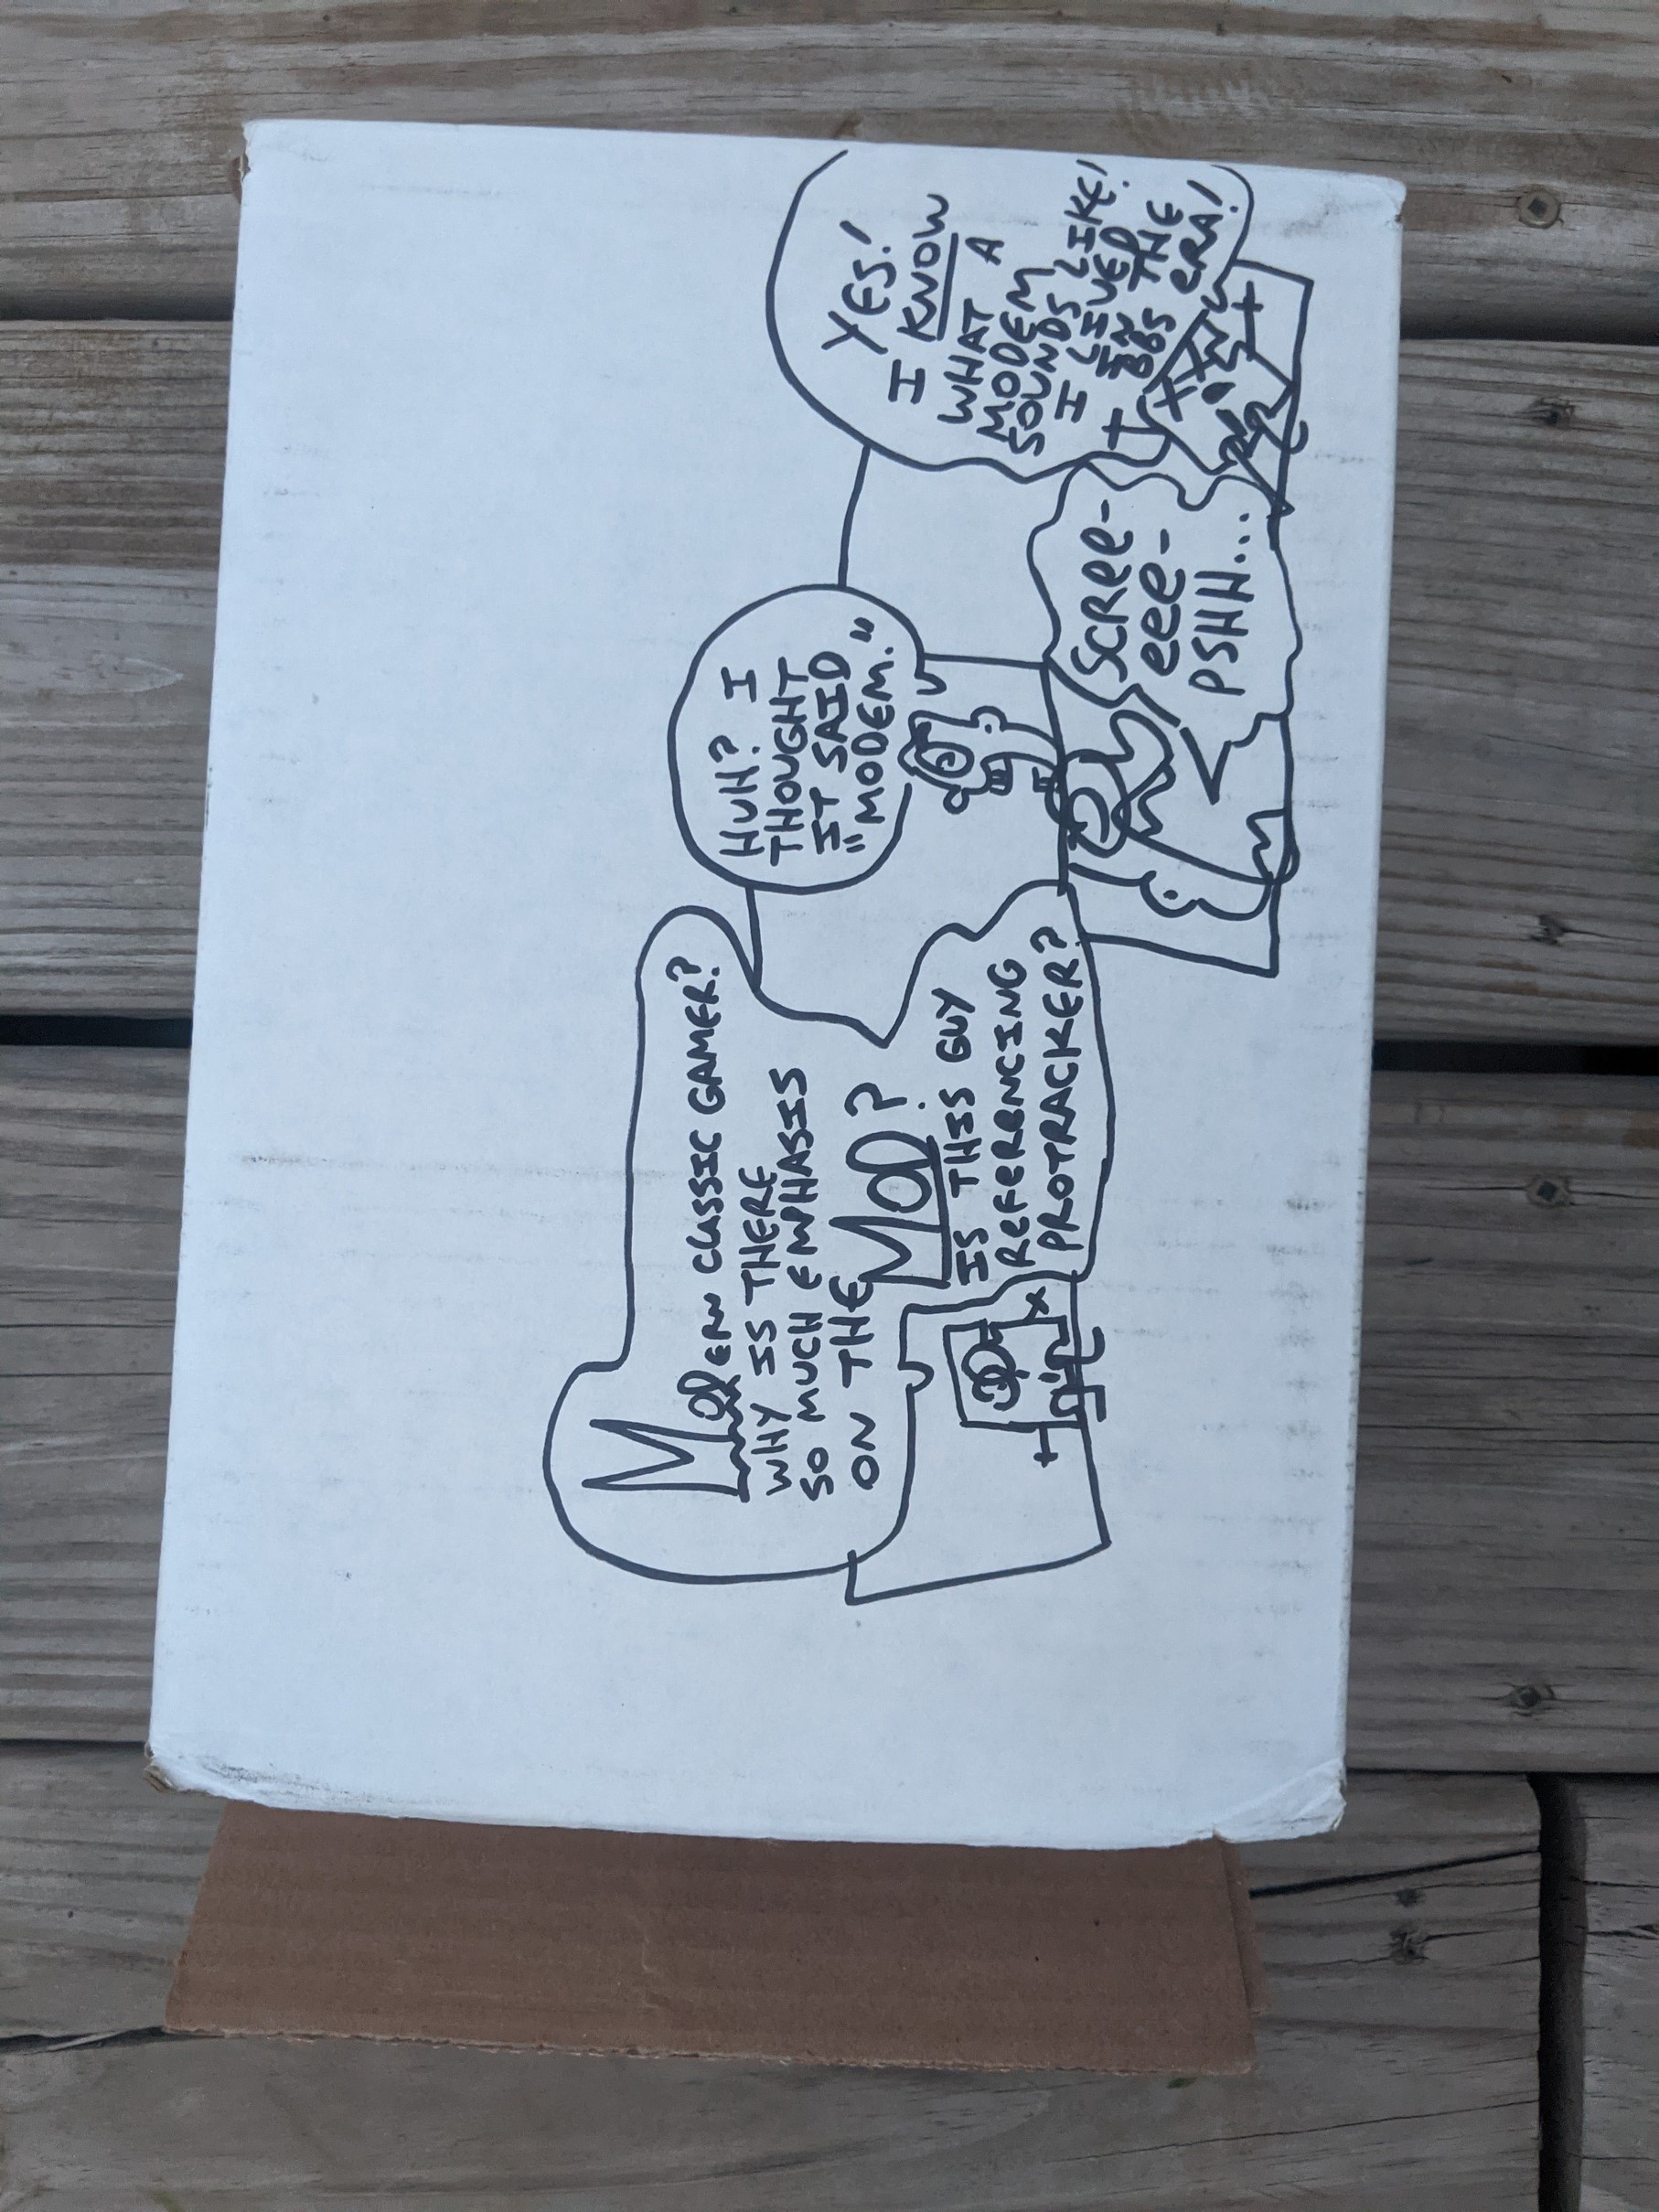 MODERN CLASSIC GAMER?
WHY IS THERE
SO MUCH EMPHASIS
ON THE MOD?
IS THIS GUY
REFERENCING
PROTRACKER?
HUH? I
THOUGHT
IT SAID
"MODEM."
SCREE-
eee-
PSHH...
YES!
I KNOW
WHAT A
MODEM
SOUNDS LIKE!
I LIVED
IN THE
BBS ERA!